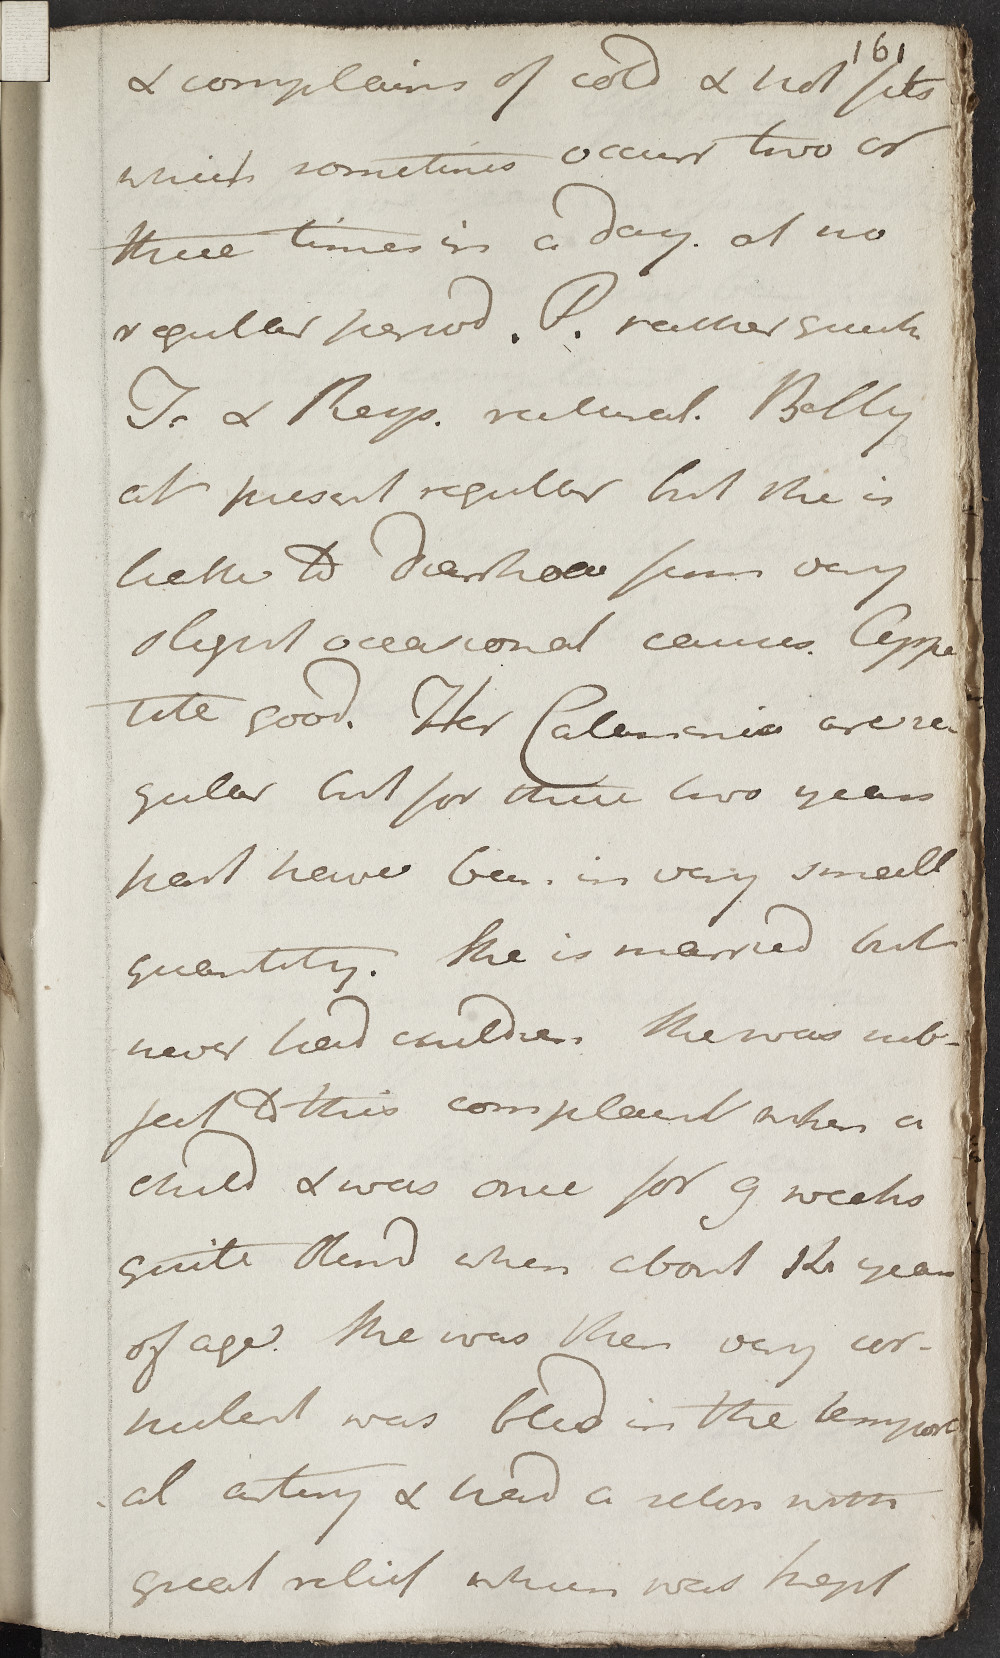 161
& complains of cold & hot fits
which sometimes occur two or
three times in a day. at no
regular period. P. rather quick
T. & Resp. natural. Belly
at present regular but she is
liable to diarrhoea from very
slight occasional causes. Appe
tite good. Her Catamenia are re
gular but for these two years
past have been in very small
quantity. She is married but
never had children. She was sub-
ject to this complaint when a
child & was once for 9 weeks
quite blind when about 12 years
of age. She was then very cor-
pulent was bled in the tempor
al artery & had a seton with
great relief which was kept